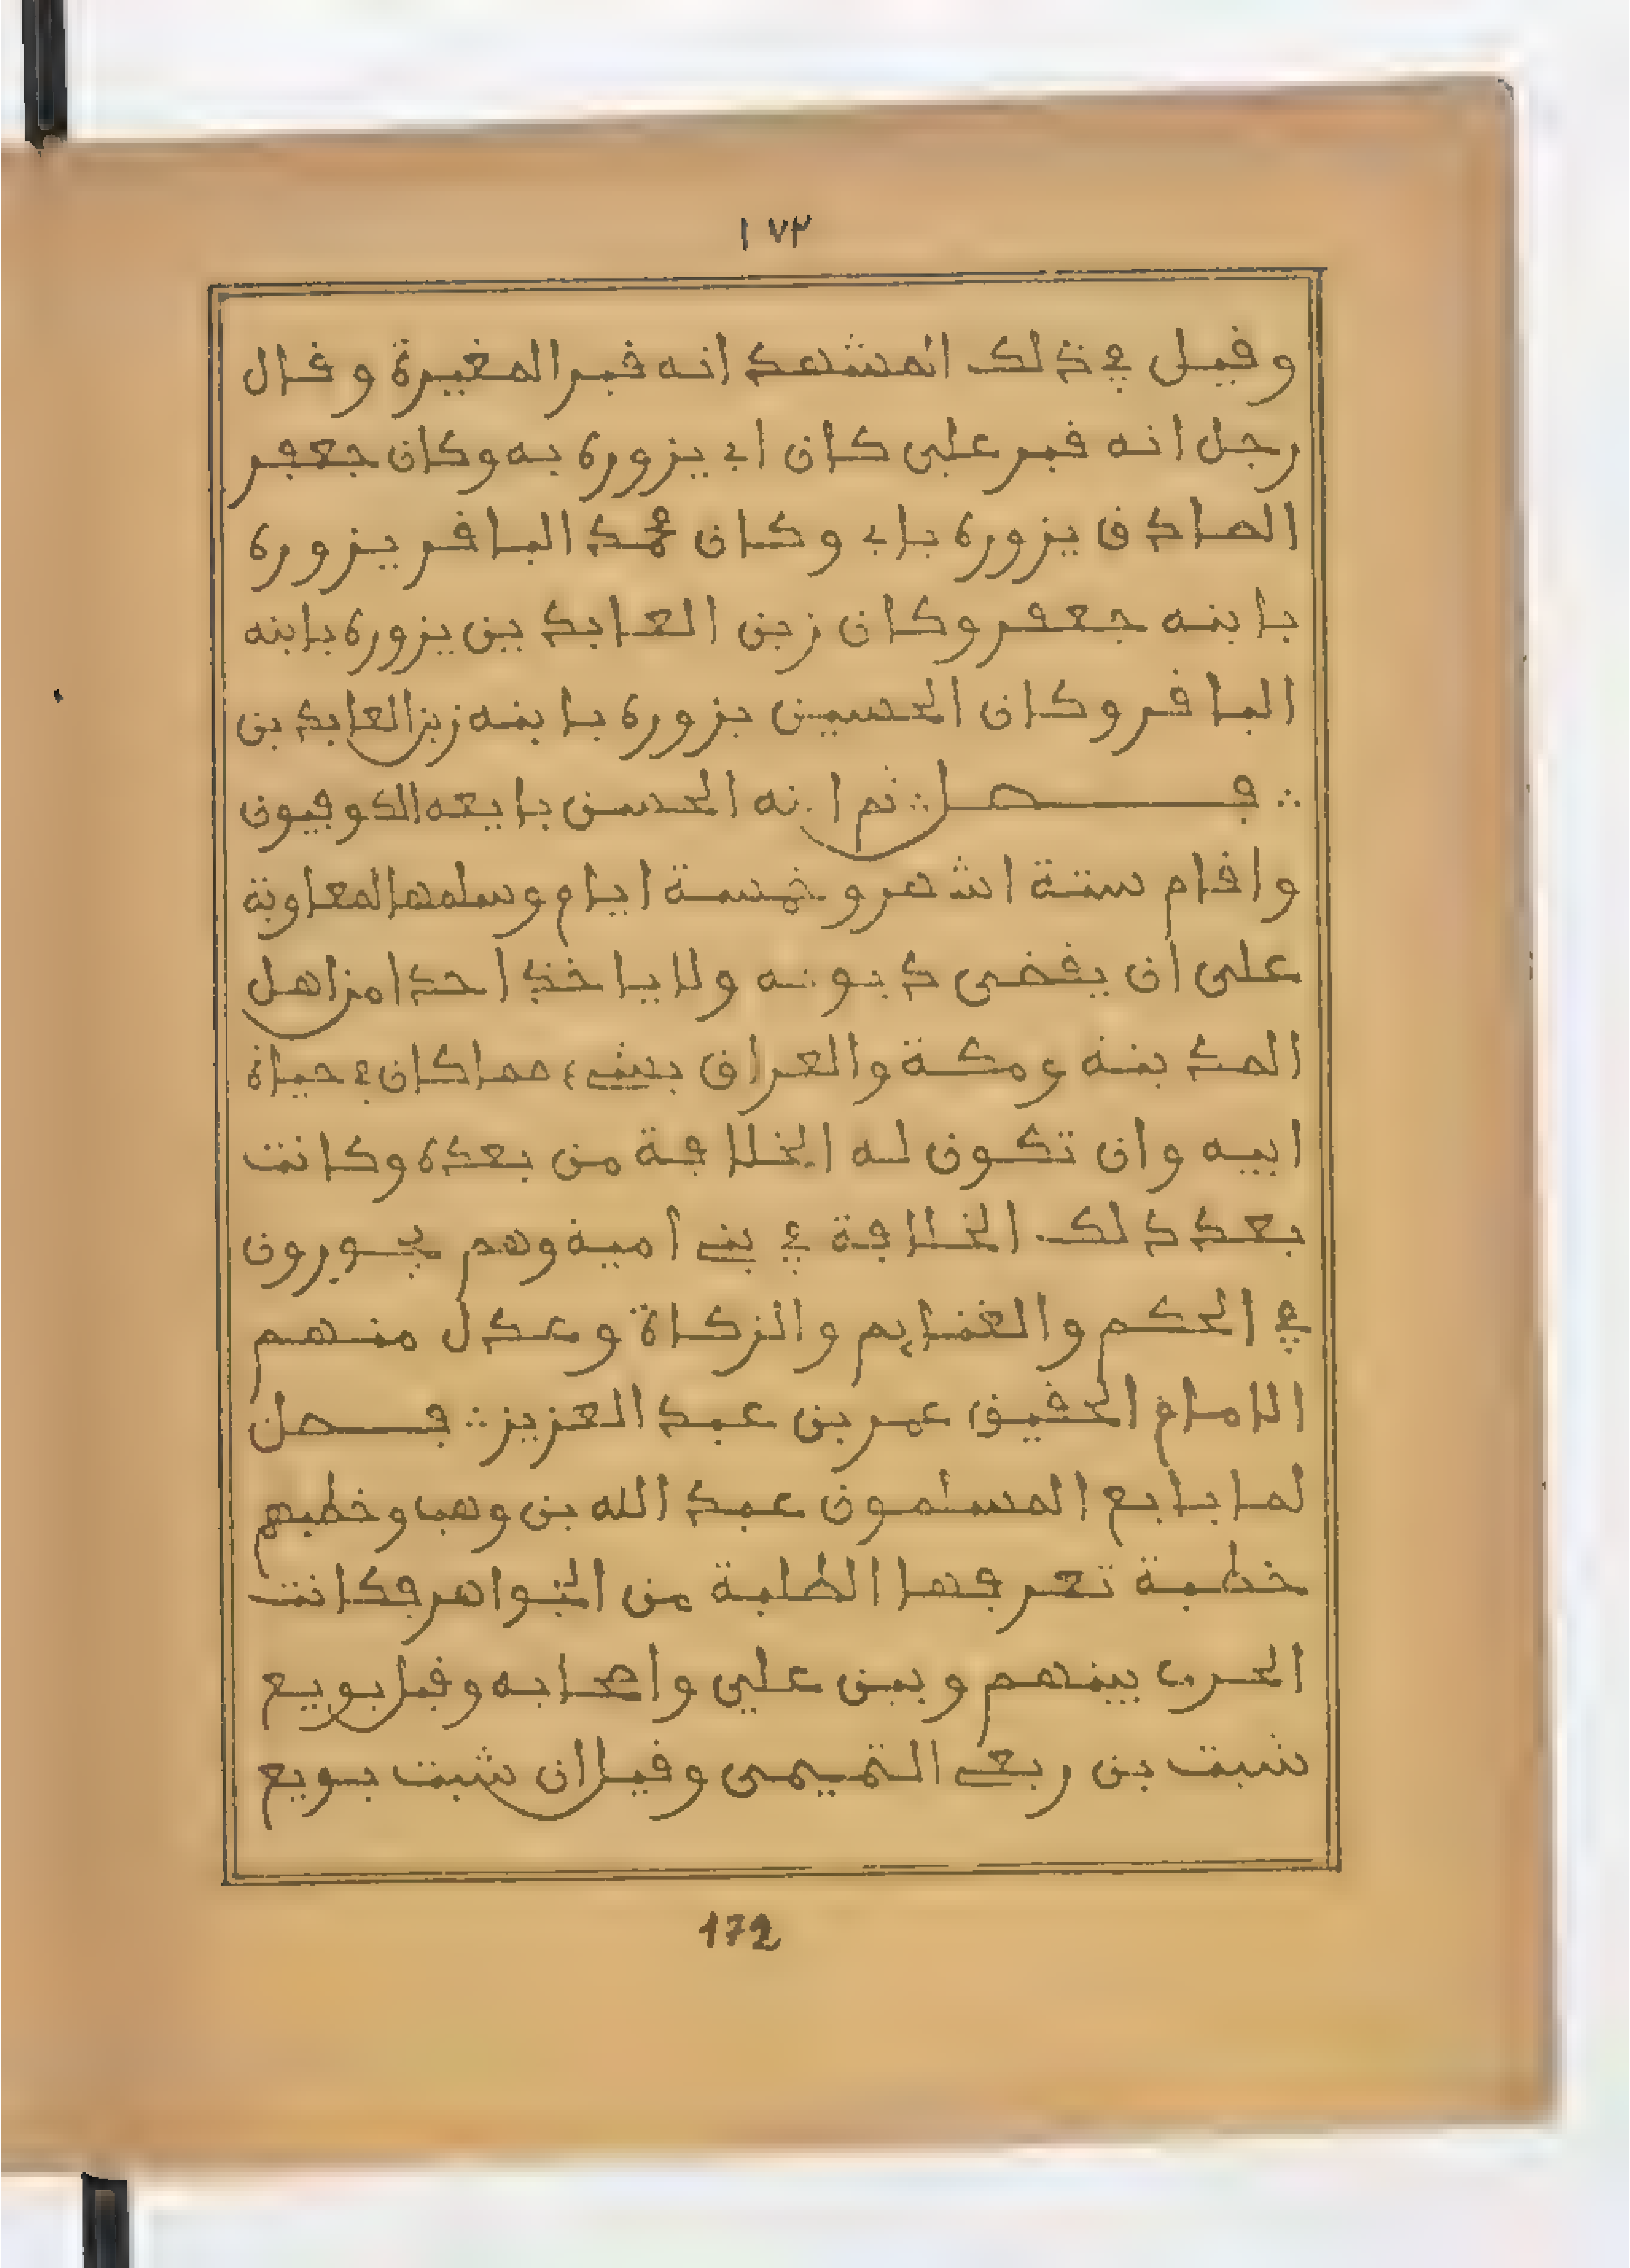 ١٧٢
وقيل في ذلك المشهد انه قبر المغيرة وقال
رجل انه قبر علي كان ابي يزوره به وكان جعفر
الصادق يزوره بابي وكان محمد الباقر يزوره
بابنه جعفر وكان زين العابدين يزوره بابنه
الباقر وكان الحسين يزوره بابنه زين العابدين
∴ فصل ∴ ثم ابنه الحسن بايعه الكوفيون
واقام ستة اشهر وخمسة ايام وسلمها لمعاوية
على ان يقضي ديونه ولا ياخذ احدا من اهل
المدينة ومكة والعراق بشيء مما كان في حياة
ابيه وان تكون له الخلافة من بعده وكانت
بعد ذلك الخلافة في بني أمية وهم يجورون
في الحكم والغنايم والزكاة وعدل منهم
الامام الحقيق عمر بن عبد العزيز ∴ فصل
لما بايع المسلمون عبد الله بن وهب وخطبهم
خطبة تعرفها الطلبة من الجواهر فكانت
الحرب بينهم وبين علي واصحابه وقبل بويع
شبت بن ربعي التميمي وقيل ان شبت بويع
172